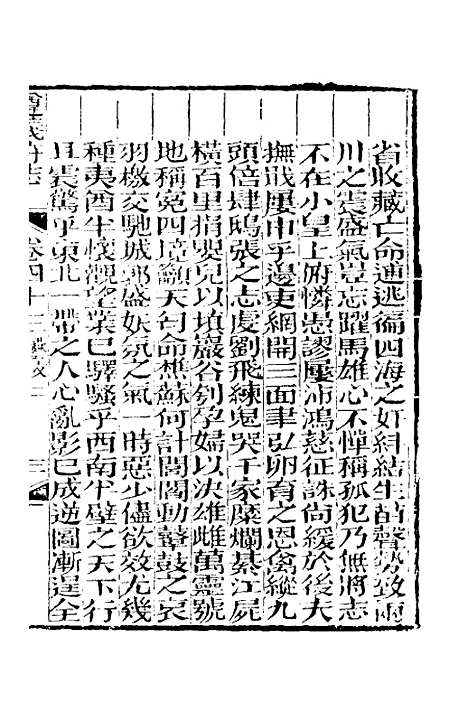 省收藏亡命逋逃徧四海之奸糾結生苗聲勢致兩
川之震盛氣豈忘躍馬雄心不憚稱孤犯乃無將志
不在小皇上俯憐愚謬屢沛鴻慈征誅尙緩於後夫
撫戢屢申乎邊吏網開三面聿弘卵育之恩翕縱九
頭倍肆鴟張之志虔劉飛練鬼哭千家糜爛綦江屍
橫百里捐嬰兒以塡巖谷刳孕婦以決雄雌萬靈號
地稱寃四境籲天匄命想蘇何計閭閻動鼙鼓之哀
羽檄交馳城郭盛妖氛之氣一時惡少儘欲效尤幾
種夷酋半懷觀望業已驛騷乎西南半壁之天下行
且震驚乎東北一帶之人心亂影已成逆圖漸逞全
遵義府志
卷四十